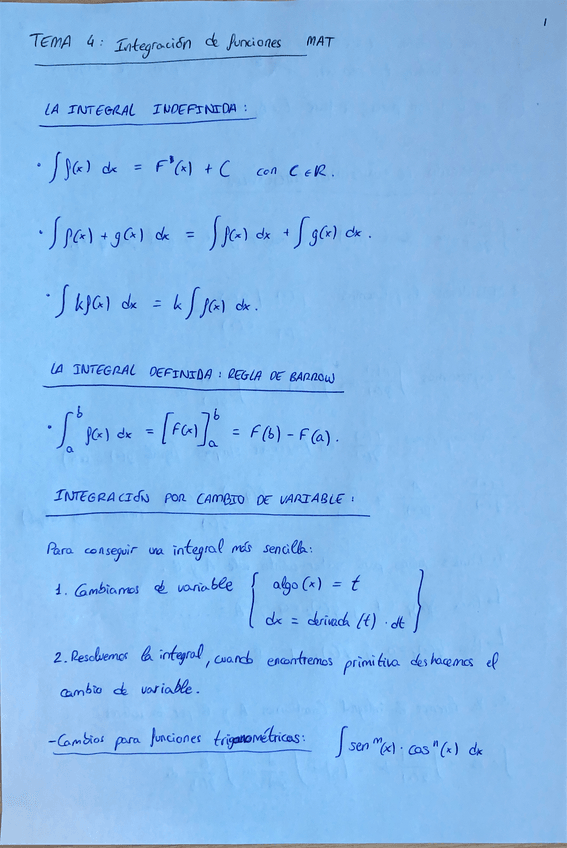 1
TEMA 4: Integración de funciones MAT
LA INTEGRAL INDEFINIDA:
· ∫ f(x) dx = F'(x) + C con C ∈ ℝ.
· ∫ f(x) + g(x) dx = ∫ f(x) dx + ∫ g(x) dx.
· ∫ k f(x) dx = k ∫ f(x) dx.
LA INTEGRAL DEFINIDA: REGLA DE BARROW
· ∫_a^b f(x) dx = [F(x)]_a^b = F(b) - F(a).
INTEGRACIÓN POR CAMBIO DE VARIABLE:
Para conseguir una integral más sencilla:
1. Cambiamos de variable { algo(x) = t
dx = derivada (t) · dt }
2. Resolvemos la integral, cuando encontremos primitiva deshacemos el
cambio de variable.
- Cambios para funciones trigonométricas: ∫ sen^m(x) · cos^n(x) dx